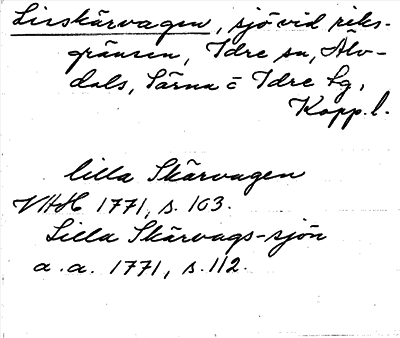 Lisskärvagen, sjö vid riks-
gränsen, Idre sn, Älv-
dals, Särna o Idre tg,
Kopp. l.
lilla Skärvagen
VHH 1771, s. 103.
Lilla Skärvags-sjön
a. a. 1771, s. 112.